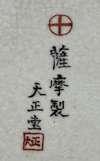 薩摩製
天正堂